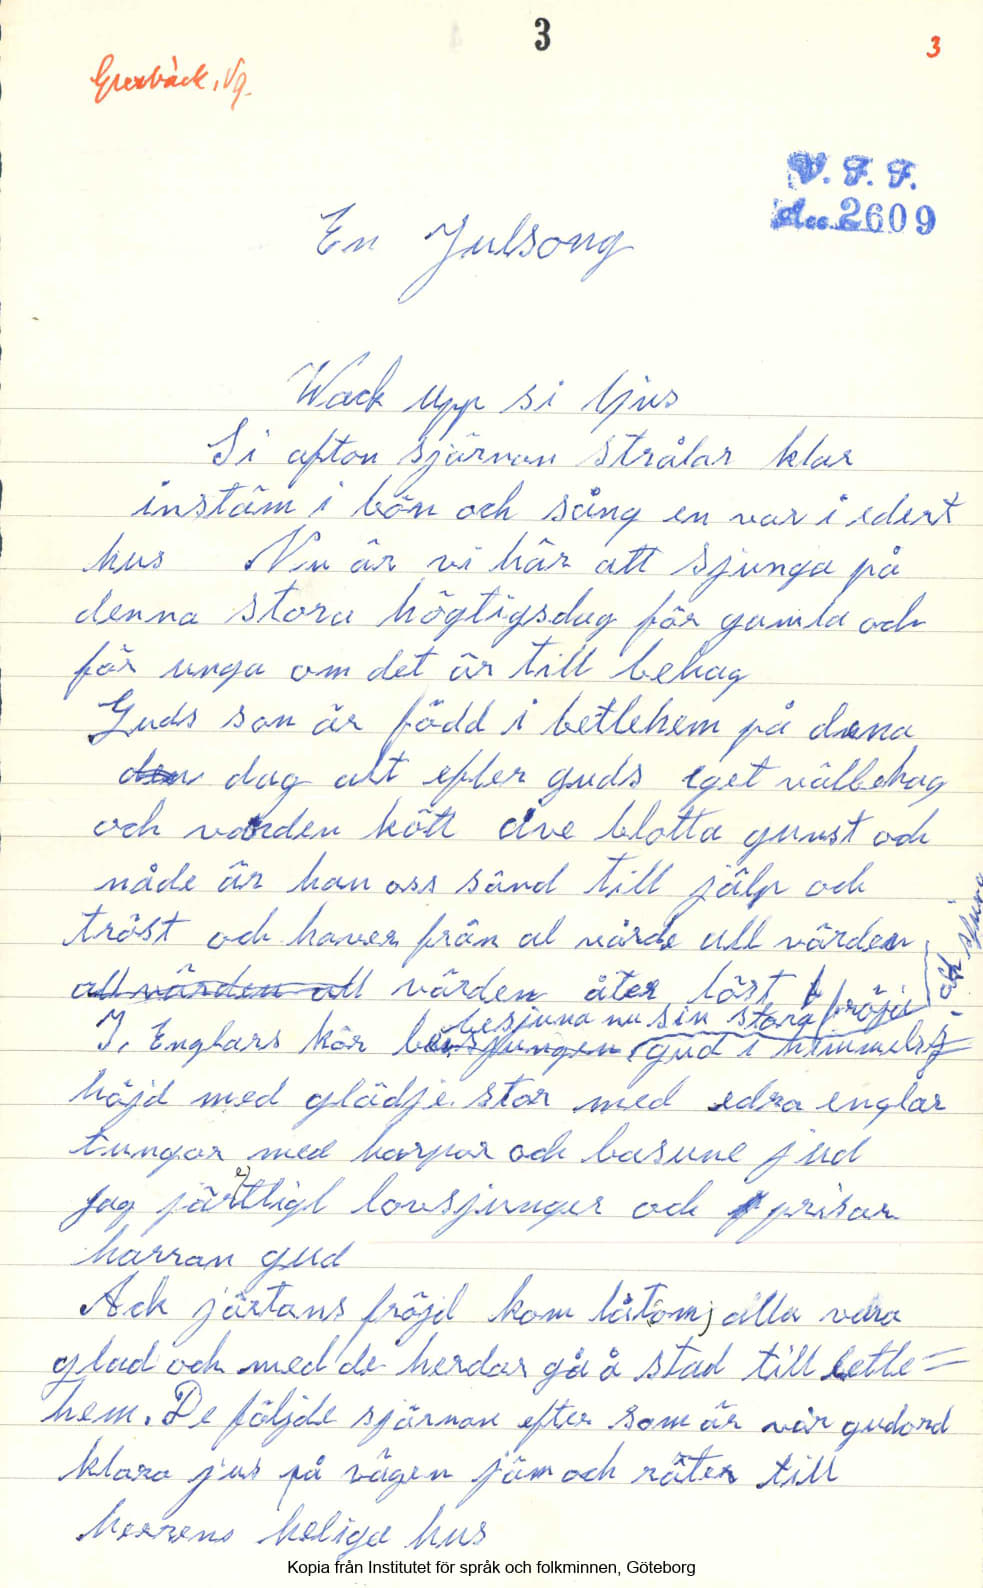 3
3
V. F. F.
Acc. 2609
En Julsong
Wack upp si ljus
Si afton sjärnan strålar klar
instäm i bön och sång en var i edert
hus Nu är vi här att sjunga på
denna stora högtigsdag för gamla och
för unga om det är till behag
Guds son är född i betlehem på dena
den dag alt efter guds eget välbehag
och vorden kött ave blotta gunst och
nåde är han oss sänd till jälp och
tröst och haver från al vårde all värden
all värden all värden åter löst
att sjuna
fröjd
besjuna nu sin stora
I, Englars kör gud i himmelss=
höjd med glädje stor med edra englar
tungor med harpor och basune jud
Jag järtligt lovsjunger och prisar
harran gud
Ack järtans fröjd kom låtom alla vara
glad och med de herdar gå å stad till betle=
hem. De följde sjärnan efter som är vår gudord
klara jus på vägen jäm och räter till
herrens heliga hus
Kopia från Institutet för språk och folkminnen, Göteborg